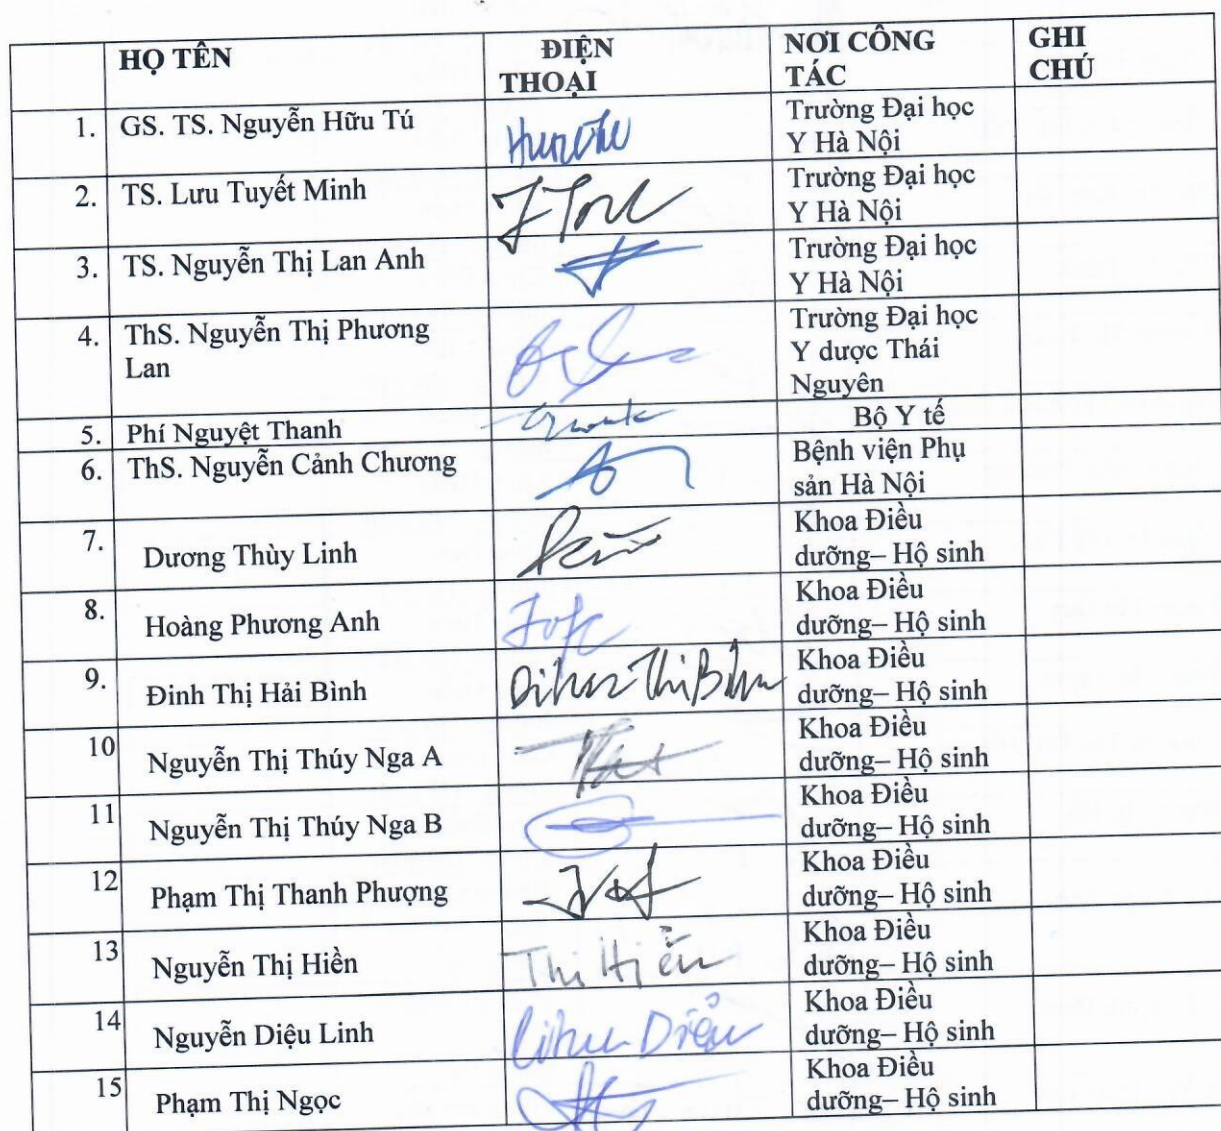 HỌ TÊN
ĐIỆN
THOẠI
NƠI CÔNG
TÁC
GHI
CHÚ
1. GS. TS. Nguyễn Hữu Tú
Trường Đại học
Y Hà Nội
2. TS. Lưu Tuyết Minh
Trường Đại học
Y Hà Nội
3. TS. Nguyễn Thị Lan Anh
Trường Đại học
Y Hà Nội
4. ThS. Nguyễn Thị Phương
Lan
Trường Đại học
Y dược Thái
Nguyên
5. Phí Nguyệt Thanh
Bộ Y tế
6. ThS. Nguyễn Cảnh Chương
Bệnh viện Phụ
sản Hà Nội
7. Dương Thùy Linh
Khoa Điều
dưỡng– Hộ sinh
8. Hoàng Phương Anh
Khoa Điều
dưỡng– Hộ sinh
9. Đinh Thị Hải Bình
Khoa Điều
dưỡng– Hộ sinh
10 Nguyễn Thị Thúy Nga A
Khoa Điều
dưỡng– Hộ sinh
11 Nguyễn Thị Thúy Nga B
Khoa Điều
dưỡng– Hộ sinh
12 Phạm Thị Thanh Phượng
Khoa Điều
dưỡng– Hộ sinh
13 Nguyễn Thị Hiền
Thi Hiền
Khoa Điều
dưỡng– Hộ sinh
14 Nguyễn Diệu Linh
Khoa Điều
dưỡng– Hộ sinh
15 Phạm Thị Ngọc
Khoa Điều
dưỡng– Hộ sinh